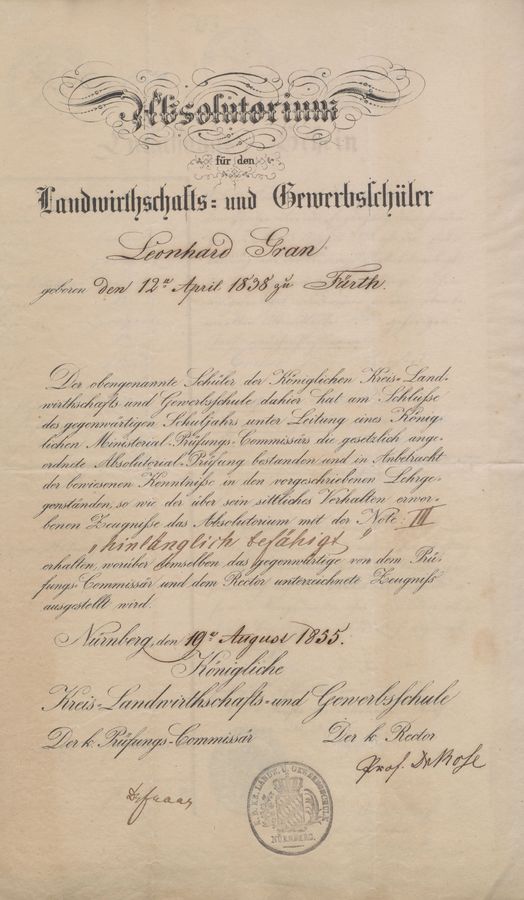 Absolutorium
für den
Landwirthschafts= und Gewerbsschüler
Leonhard Gran
geboren den 12n April 1838 zu Fürth.
Der obengenannte Schüler der Königlichen Kreis=Land-
wirthschafts und Gewerbsschule dahier hat am Schluße
des gegenwärtigen Schuljahrs unter Leitung eines König-
lichen Ministerial=Prüfungs=Commissärs die gesetzlich ange-
ordnete Absolutorial=Prüfung bestanden und in Anbetracht
der bewiesenen Kenntniße in den vorgeschriebenen Lehrge-
genständen, so wie der über sein sittliches Verhalten erwor-
benen Zeugniße das Absolutorium mit der Note: III
„hinlänglich befähigt"
erhalten, worüber demselben das gegenwärtige von dem Prü-
fungs=Commissär und dem Rector unterzeichnete Zeugniß
ausgestellt wird.
Nürnberg, den 19n August 1855.
Königliche
Kreis=Landwirthschafts=und Gewerbsschule
Der k. Prüfungs=Commissär
Der k. Rector
Prof. Dr Rose
Dr Fraas
K. B. KR. LANDW. U. GEWERBSCHULE
NÜRNBERG.